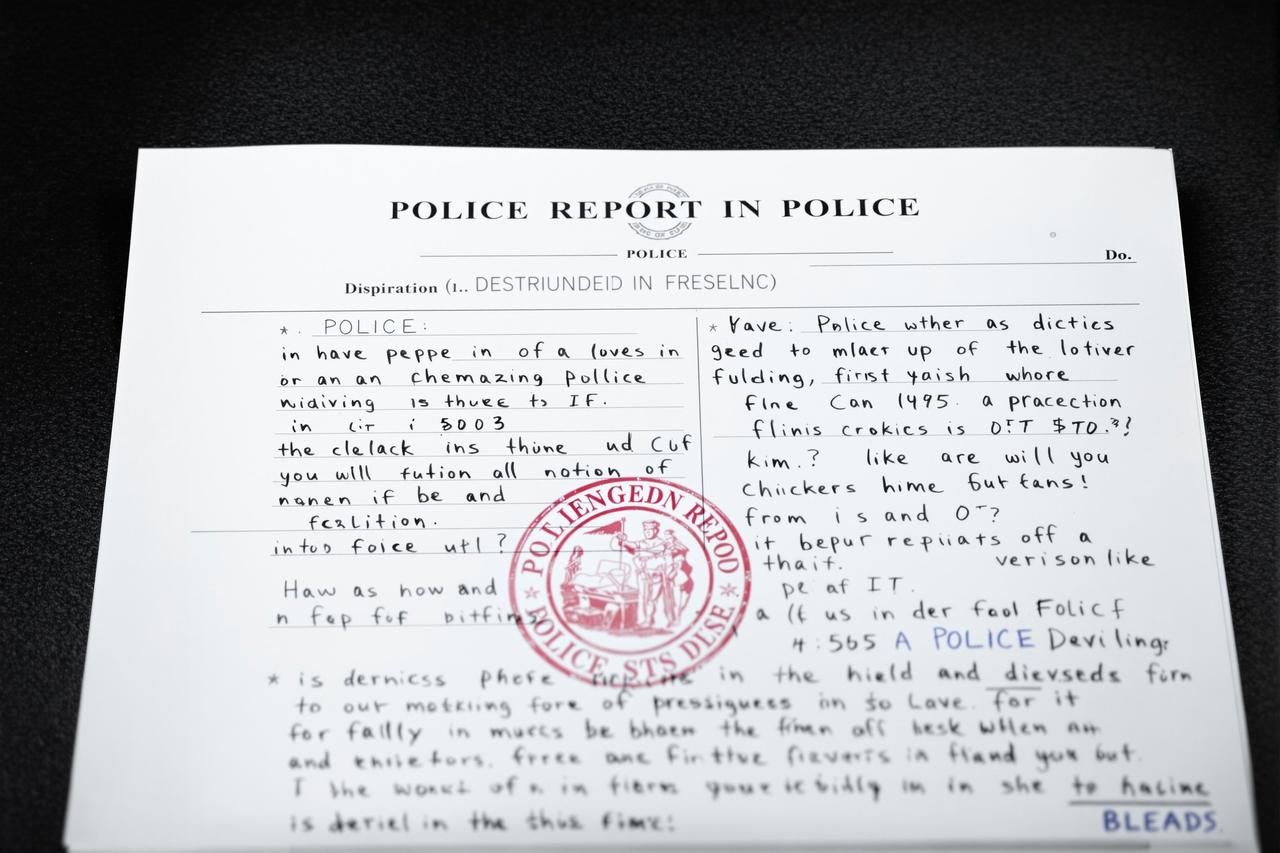 POLICE REPORT IN POLICE
POLICE
Do.
Dispiration (1.. DESTRIUNDEID IN FRESELNC)
*. POLICE:
in have peppe in of a loves in
or an an chemazing pollice
niaiving is thuee to IF.
in i 5003
the clelack ins thine ud Cuf
you will fution all notion of
nanen if be and
fezlition.
intuo foice utl?
Haw as how and
n fep fof bitfins
* Yave: Police wther as dicties
geed to mlaer up of the lotiver
fulding, first yaish whore
fine Can 1495. a pracection
flinis crokics is
kim.? like are will you
Chiickers hime fut tans!
from is and O⁻?
it bepur repiiats off a
thait. verison like
pe af IT.
a us in der faol Folicf
4:565 A POLICE Deviling:
POLIENGEDN REPOD
POLICE STS DLSE
* is dernicss phofe in the hield and dievseds firn
to our motkiing fore of pressiguees in so Lave. for it
for failly in murcs be bhaen the finen off besk when an
and frree ane in fland you but.
T the of in she to haline
is deriel in the this fime:
BLEADS.